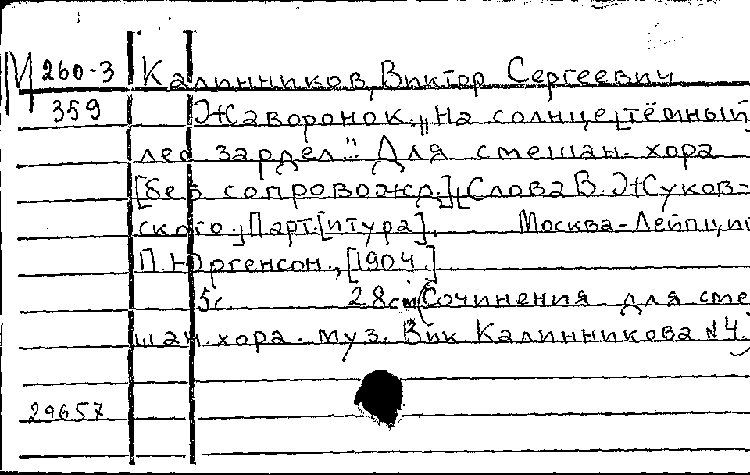 М 260-3 Калинников, Виктор Сергеевич
359 Жаворонок. „На солнце тёмный
лес зардел". Для смешан. хора
[без сопровожд.] Слова В. Жуков-
ского. Парт[итура]. Москва-Лейпциг
П. Юргенсон, [1904.]
5с. 28см (Сочинения для сме
шан. хора. муз. Вик Калинникова №4.
29657